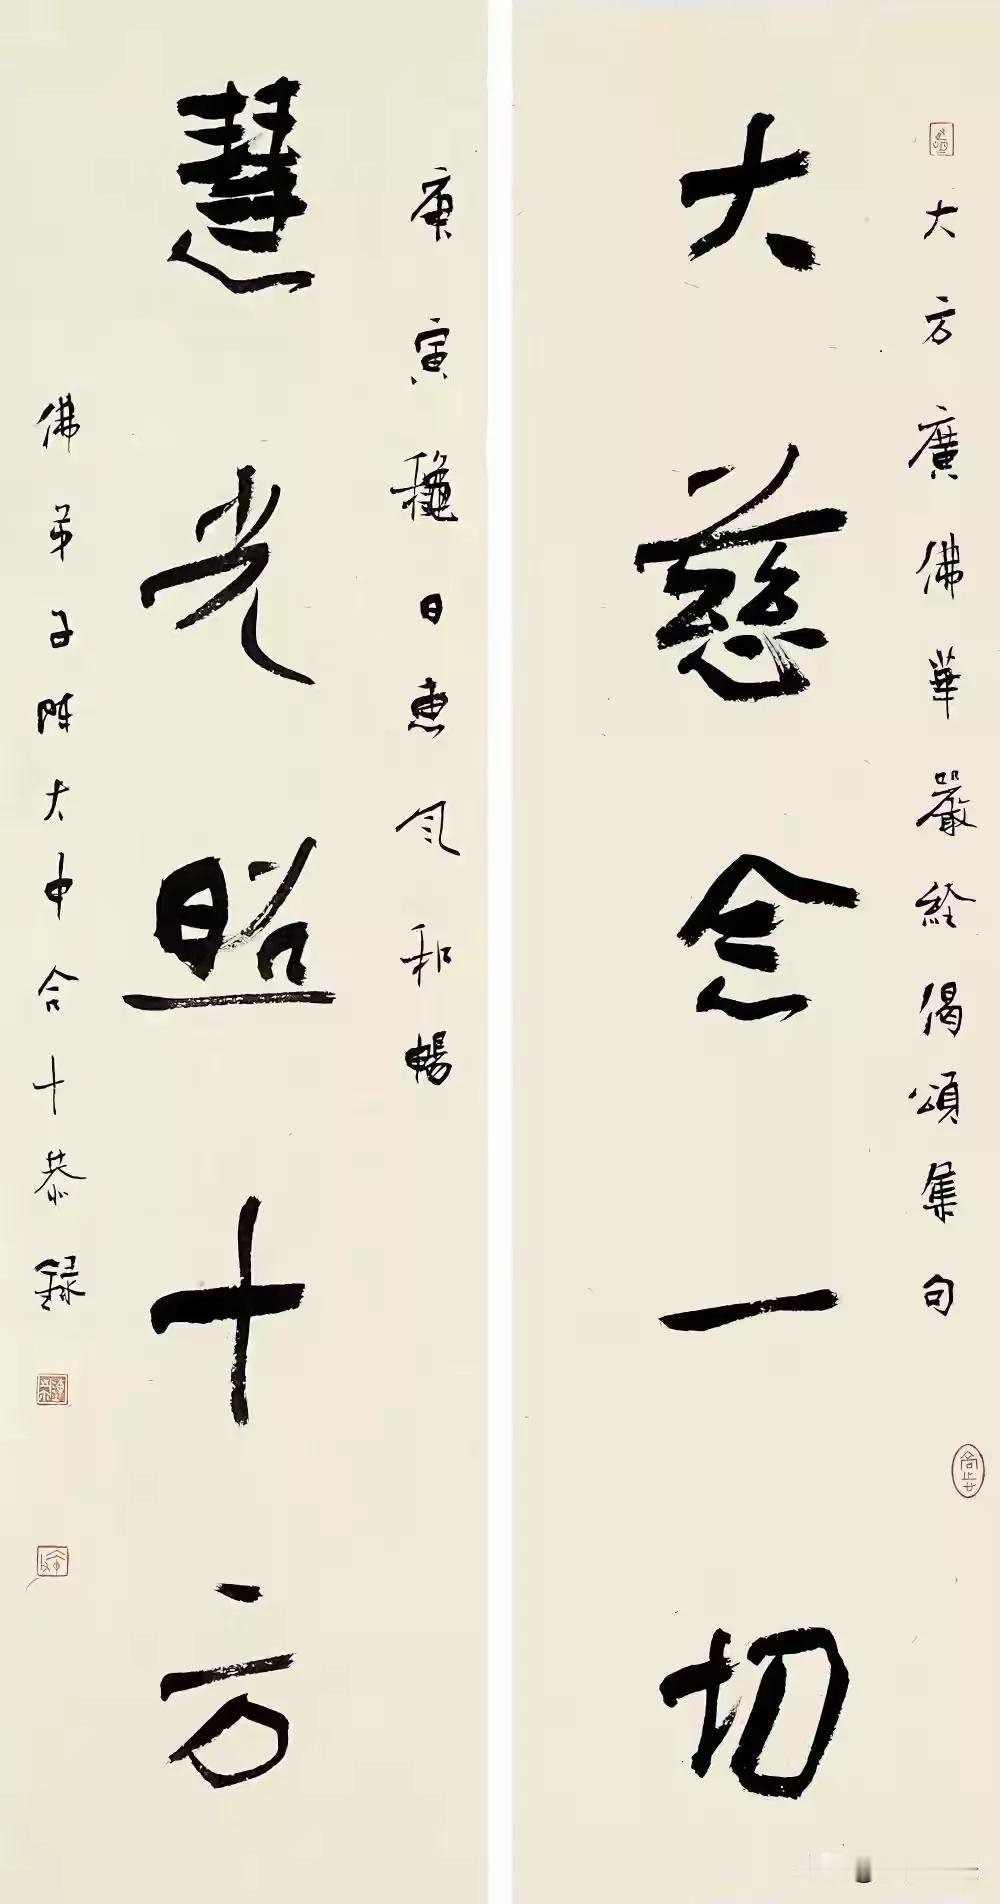 大方廣佛華嚴經偈頌集句
大慈念一切
庚寅龝日惠風和暢
慧光照十方
佛弟子陳大中合十恭録